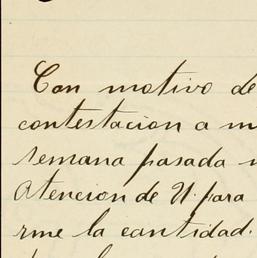 Con motivo de
contestacion a m
semana pasada
Atencion de U. para
rme la cantidad.